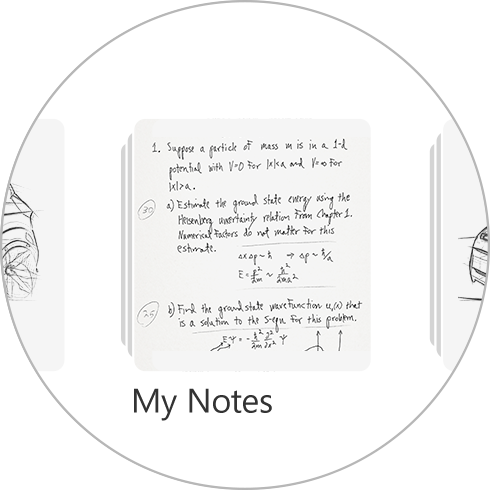 1. Suppose a particle of mass m is in a 1-d
potential with V=0 for |x|<a and V=∞ for
|x|>a.
30
a) Estimate the ground state energy using the
Heisenberg uncertainty relation from Chapter 1.
Numerical factors do not matter for this
estimate.
ΔxΔp~ħ → Δp~ħ/a
E=p²/2m ~ ħ²/2ma²
25
b) Find the ground state wavefunction u₁(x) that
is a solution to the S-equ for this problem.
Eψ = -ħ²/2m ∂²/∂x² ψ
My Notes